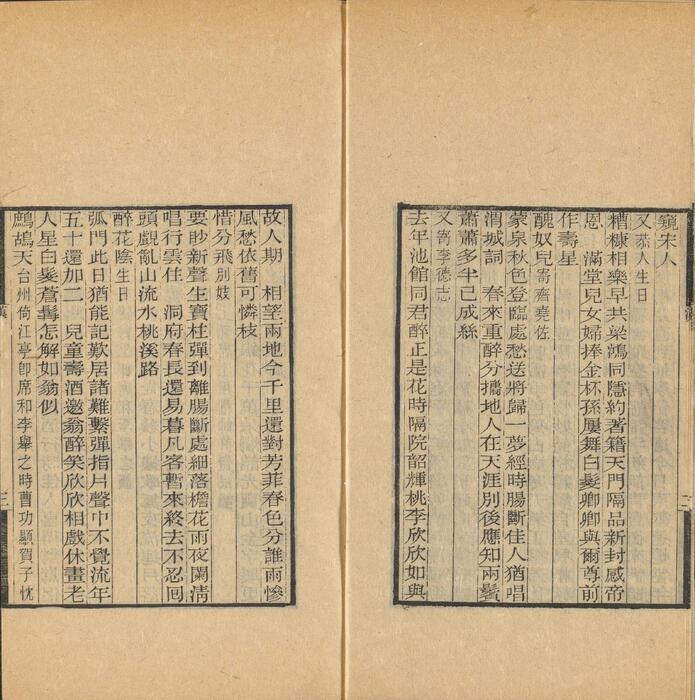 窺宋人
又恭人生日
糟糠相樂早共梁鴻同隱約著籍天門隔品新封感帝
恩　滿堂兒女婦捧金杯孫屢舞白髮卿卿與爾尊前
作壽星
醜奴兒寄齊堯佐
蒙泉秋色登臨處愁送將歸一夢經時腸斷佳人猶唱
渭城詞　春來重醉分攜地人在天涯別後應知兩鬢
蕭蕭多半已成絲
又寄李德志
去年池館同君醉正是花時隔院韶輝桃李欣欣如與
二
故人期　相望兩地今千里還對芳菲春色分誰雨慘
風愁依舊可憐枝
惜分飛別妓
要眇新聲生寶柱彈到離腸斷處細落檐花雨夜闌淸
唱行雲住　洞府春長還易暮凡客暫來終去不忍囘
頭覷亂山流水桃溪路
醉花陰生日
弧門此日猶能記歎居諸難繫彈指片聲中不覺流年
五十還加二　兒童壽酒邀翁醉笑欣欣相戲休畫老
人星白髮蒼髯怎解如翁似
鷓鴣天台州倚江亭卽席和李舉之時曹功顯賀子忱
三